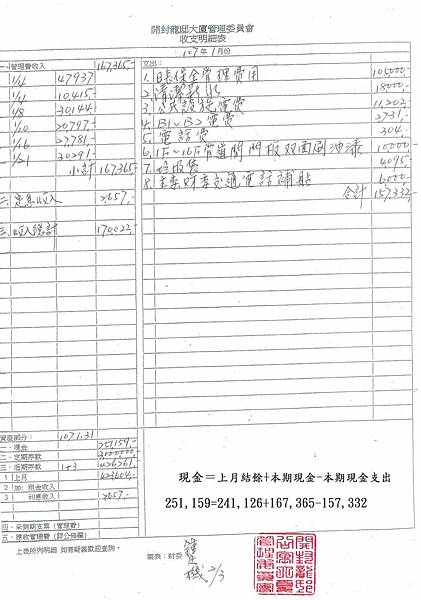 開封龍邸大廈管理委員會
收支明細表
107年1月份
一、管理費收入 167,365.-
1/4 47937
1/4 10,415.-
1/8 30144.-
1/10 20,797.-
1/16 27,781.-
1/21 30291.-
小計 167,365.-
二、定息收入 2,657.-
三、收入總計 170022.-
支出:
1. 保全管理費用 105000.-
2. 清潔 18000.-
3. 公共設施電費 11,202.-
4. B1~B2電費 2731.-
5. 電話費 304.-
6. 1F~16F管道間門板双面刷油漆 10000.-
7. 垃圾費 4095.-
8. 主委財委交通電話補貼 6000.-
合計 157,332.-
資產部分: 107.1.31
一、現金 251159.-
二、定期存款 2000000.-
三、活期存款 1+3 426261.-
1 上月 423604.-
2 加:租金收入
3 利息收入 2657.-
四、未到期支票(管理費)
五、應收管理費(詳公佈欄)
上表所列明細 如有疑義歡迎查詢。
製表:財委
2/3
現金=上月結餘+本期現金-本期現金支出
251,159=241,126+167,365-157,332
開封龍邸
大廈管理委員會